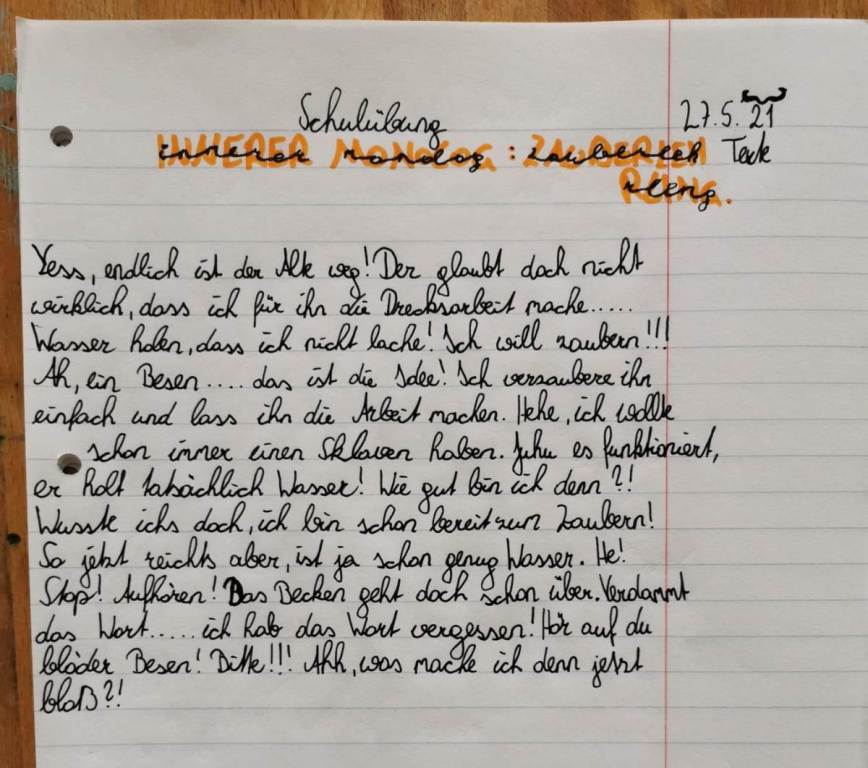 Schulübung 27.5.21
innerer monolog: zauberleh Text
rling.
Yess, endlich ist der Alte weg! Der glaubt doch nicht
wirklich, dass ich für ihn die Drecksarbeit mache.....
Wasser holen, dass ich nicht lache! Ich will zaubern!!!
Ah, ein Besen.... das ist die Idee! Ich verzaubere ihn
einfach und lass ihn die Arbeit machen. Hehe, ich wollte
schon immer einen Sklaven haben. Juhu es funktioniert,
er holt tatsächlich Wasser! Wie gut bin ich denn?!
Wusste ichs doch, ich bin schon bereit zum Zaubern!
So jetzt reichts aber, ist ja schon genug Wasser. He!
Stop! Aufhören! Das Becken geht doch schon über. Verdammt
das Wort..... ich hab das Wort vergessen! Hör auf du
blöder Besen! Bitte!!! Ahh, was mache ich denn jetzt
bloß?!